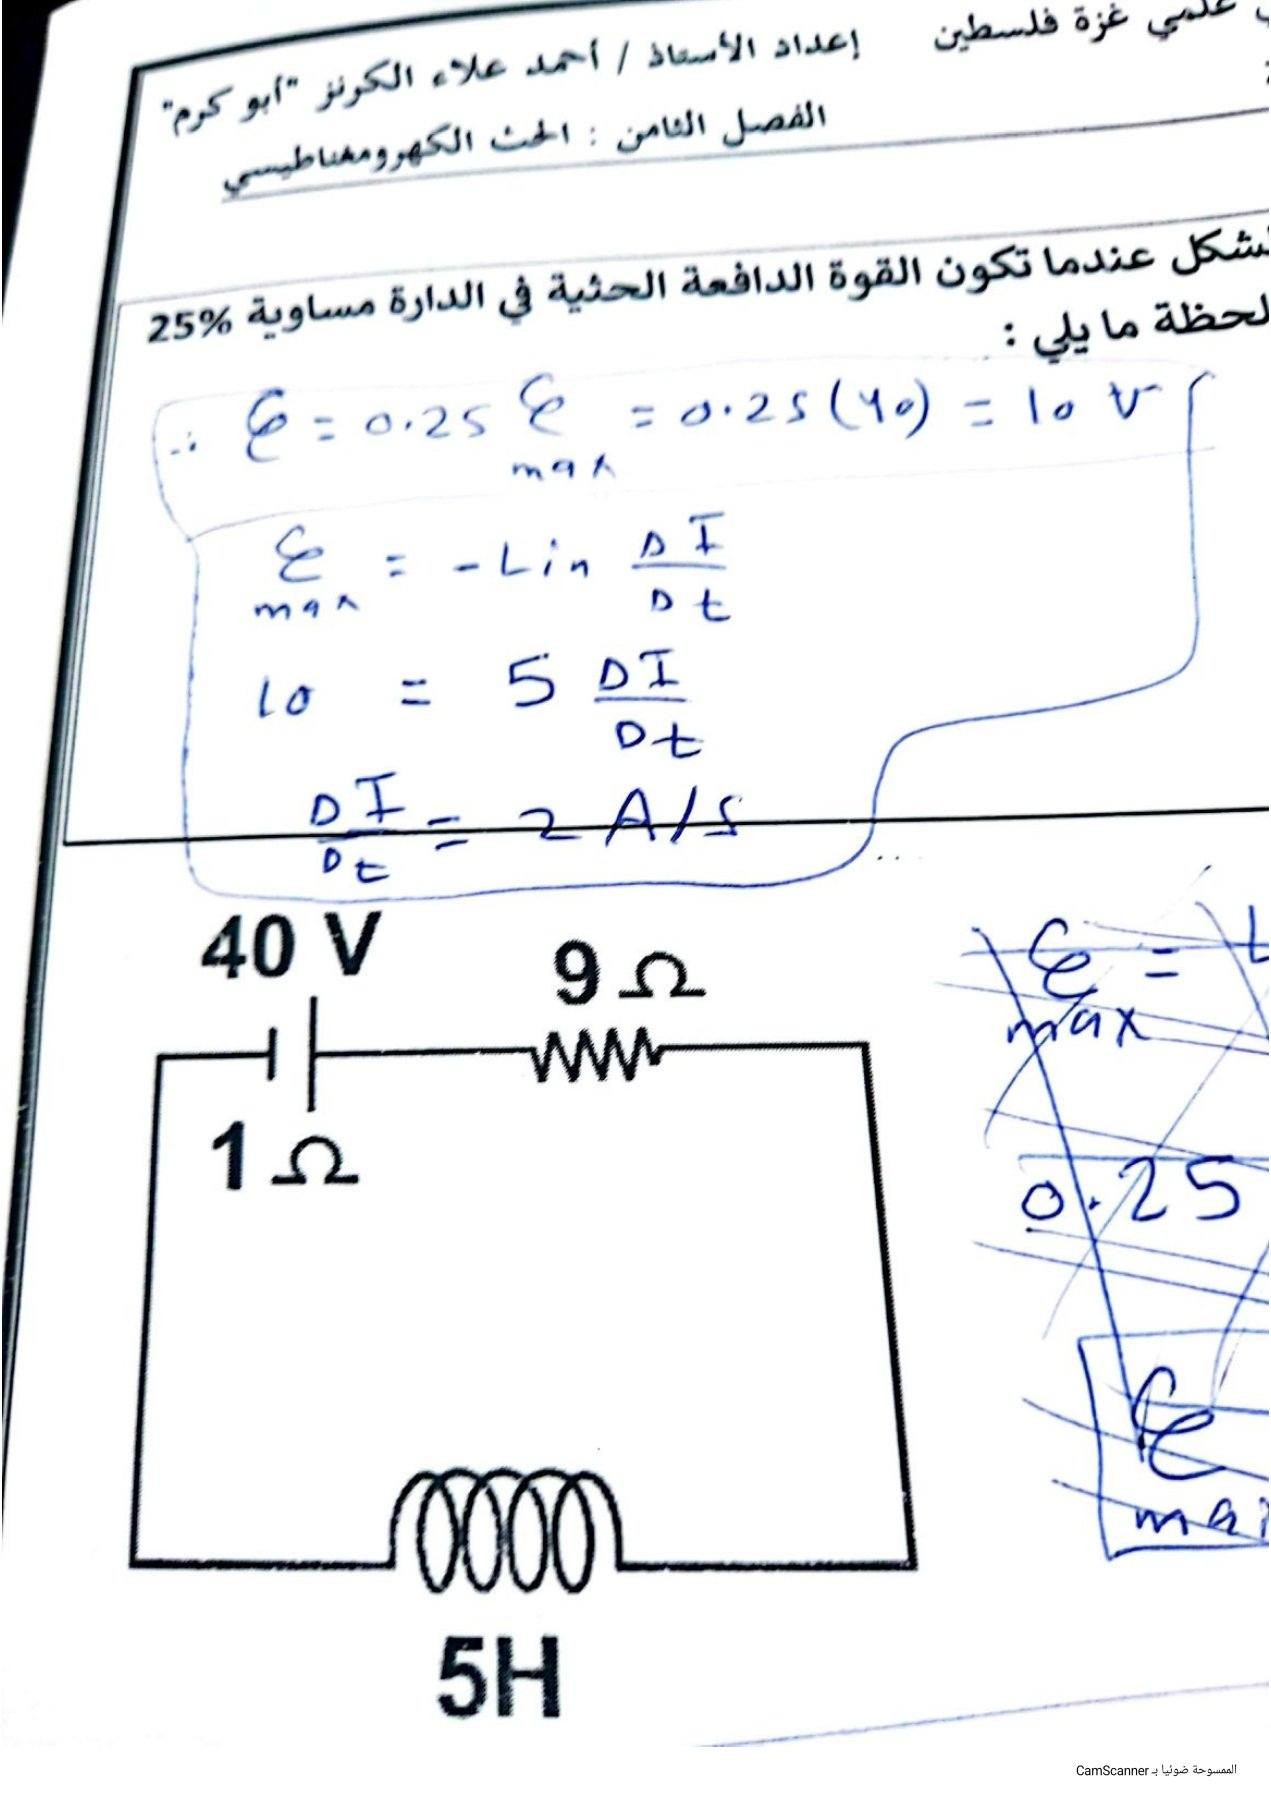 علمي غزة فلسطين إعداد الأستاذ / أحمد علاء الكرنز "أبو كرم"
الفصل الثامن : الحث الكهرومغناطيسي
عندما تكون القوة الدافعة الحثية في الدارة مساوية 25%
ما يلي :
∴ ℰ = 0.25 ℰ max = 0.25 (40) = 10 V
ℰ max = - Lin ΔI / Δt
10 = 5 ΔI / Δt
ΔI / Δt = 2 A/S
40 V
9 Ω
1 Ω
ℰ max = L
0.25
ℰ
5H
الممسوحة ضوئيا بـ CamScanner